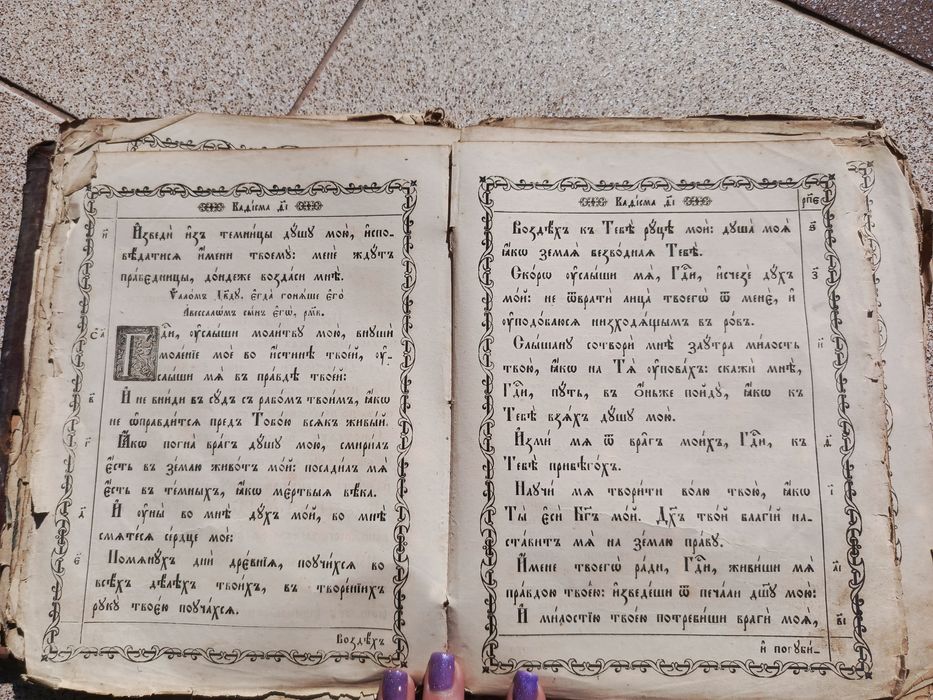 Каѳісма ѳ҃і
и҃ И҆зведѝ и҆зъ темни́цы дꙋ́шꙋ мою̀, и҆спо-
вѣ́датисѧ и҆́мени твоемꙋ̀: менѐ ждꙋ́тъ
пра́вєдницы, до́ндеже возда́си мнѣ̀.
Ѱало́мъ Дв҃дꙋ, є҆гда̀ гонѧ́ше є҆го̀
А҆вессалѡ́мъ сы́нъ є҆гѡ̀, рм҃в.
с҃а Гд҇и, ᲂу҆слы́ши моли́твꙋ мою̀, внꙋшѝ
моле́нїе моѐ во и҆́стинѣ твое́й, ᲂу҆-
слы́ши мѧ̀ въ пра́вдѣ твое́й:
в҃ И҆ не вни́ди въ сꙋ́дъ съ рабо́мъ твои́мъ, ꙗ҆́кѡ
не ѡ҆правди́тсѧ предъ Тобо́ю всѧ́къ живы́й.
г҃ Ꙗ҆́кѡ погна̀ вра́гъ дꙋ́шꙋ мою̀, смири́лъ
є҆́сть въ зе́млю живо́тъ мо́й: посади́лъ мѧ̀
є҆́сть въ те́мныхъ, ꙗ҆́кѡ мє́ртвыѧ вѣ́ка.
д҃ И҆ ᲂу҆ны̀ во мнѣ̀ дꙋ́хъ мо́й, во мнѣ̀
смѧте́сѧ се́рдце моѐ:
є҃ Помѧнꙋ́хъ дни̑ дрє́внїѧ, поꙋчи́хсѧ во
всѣ́хъ дѣ́лѣхъ твои́хъ, въ творе́нїихъ
рꙋкꙋ̀ твоє́ю поꙋча́хсѧ.
Воздѣ́хъ
Каѳісма ѳ҃і
рп҃є
Воздѣ́хъ къ Тебѣ̀ рꙋ́цѣ моѝ: дꙋша̀ моѧ̀ ѕ҃
ꙗ҆́кѡ землѧ̀ безво́днаѧ Тебѣ̀.
Ско́рѡ ᲂу҆слы́ши мѧ̀, Гд҇и, и҆счезѐ дꙋ́хъ з҃
мо́й: не ѿвратѝ лица̀ твоегѡ̀ ѿ менє̀, и҆
ᲂу҆подо́блюсѧ низходѧ́щымъ въ ро́въ.
Слы́шанꙋ сотворѝ мнѣ̀ заꙋ́тра ми́лость и҃
твою̀, ꙗ҆́кѡ на Тѧ̀ ᲂу҆пова́хъ: скажѝ мнѣ̀,
Гд҇и, пꙋ́ть, въ ѻ҆́ньже пойдꙋ̀, ꙗ҆́кѡ къ
Тебѣ̀ взѧ́хъ дꙋ́шꙋ мою̀.
И҆зми́ мѧ ѿ вра̑гъ мои́хъ, Гд҇и, къ ѳ҃
Тебѣ̀ прибѣго́хъ.
Наꙋчи́ мѧ твори́ти во́лю твою̀, ꙗ҆́кѡ і҃
Ты̀ є҆сѝ Бг҃ъ мо́й. Дх҃ъ тво́й благі́й на-
ста́витъ мѧ̀ на зе́млю пра́вꙋ.
И҆́мене твоегѡ̀ ра́ди, Гд҇и, живи́ши мѧ̀ а҃і
пра́вдою твое́ю: и҆зведе́ши ѿ печа́ли дш҃ꙋ мою̀:
И҆ ми́лостїю твое́ю потреби́ши врагѝ моѧ̑, в҃і
и҆ погꙋби-